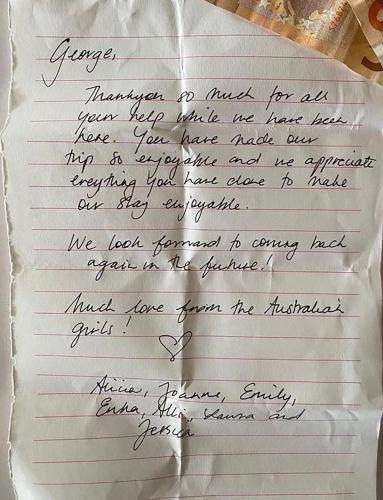 George,
Thankyou so much for all
your help while we have been
here. You have made our
trip so enjoyable and we appreciate
ereything you have done to make
our stay enjoyable.
We look forward to coming back
again in the future!
Much love from the Australian
girls!
Alicia, Joanne, Emily,
Enha, Alli, Laura and
Jessica